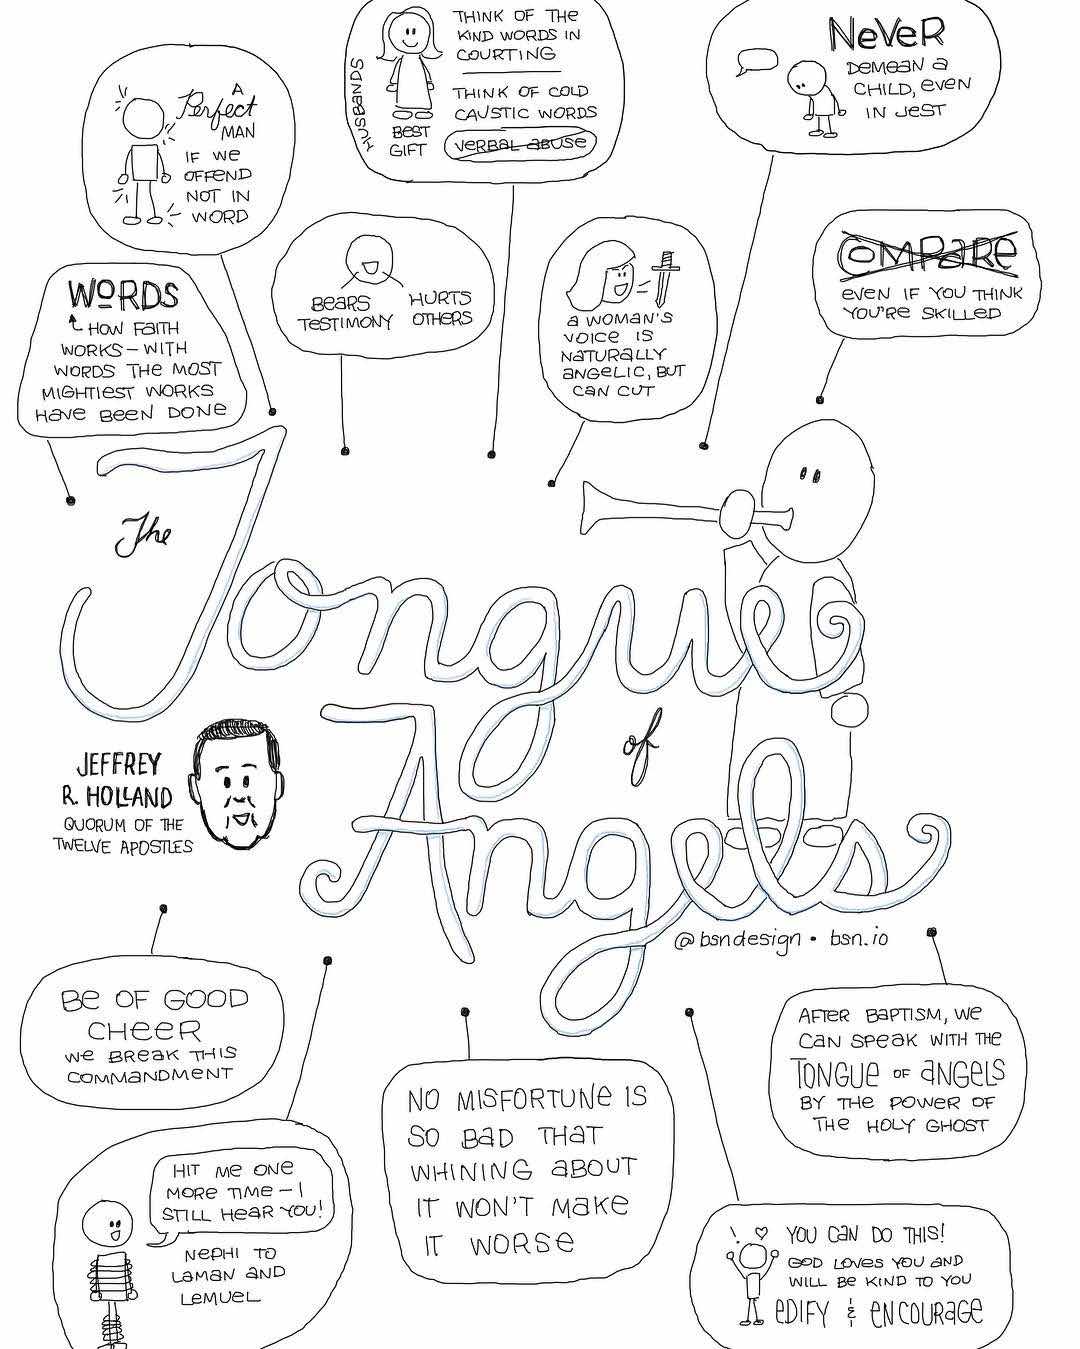 A
Perfect
MAN
IF WE
OFFEND
NOT IN
WORD
HUSBANDS
BEST
GIFT
THINK OF THE
KIND WORDS IN
COURTING
THINK OF COLD
CAUSTIC WORDS
VERBAL ABUSE
NEVER
DEMEAN A
CHILD, EVEN
IN JEST
WORDS
HOW FAITH
WORKS – WITH
WORDS THE MOST
MIGHTIEST WORKS
HAVE BEEN DONE
BEARS
TESTIMONY
HURTS
OTHERS
A WOMAN'S
VOICE IS
NATURALLY
ANGELIC, BUT
CAN CUT
COMPARE
EVEN IF YOU THINK
YOU'RE SKILLED
The
Tongue
of
Angels
JEFFREY
R. HOLLAND
QUORUM OF THE
TWELVE APOSTLES
@bsndesign • bsn.io
BE OF GOOD
CHEER
WE BREAK THIS
COMMANDMENT
HIT ME ONE
MORE TIME – I
STILL HEAR YOU!
NEPHI TO
LAMAN AND
LEMUEL
NO MISFORTUNE IS
SO BAD THAT
WHINING ABOUT
IT WON'T MAKE
IT WORSE
AFTER BAPTISM, WE
CAN SPEAK WITH THE
TONGUE OF ANGELS
BY THE POWER OF
THE HOLY GHOST
! ♡ YOU CAN DO THIS!
GOD LOVES YOU AND
WILL BE KIND TO YOU
EDIFY & ENCOURAGE